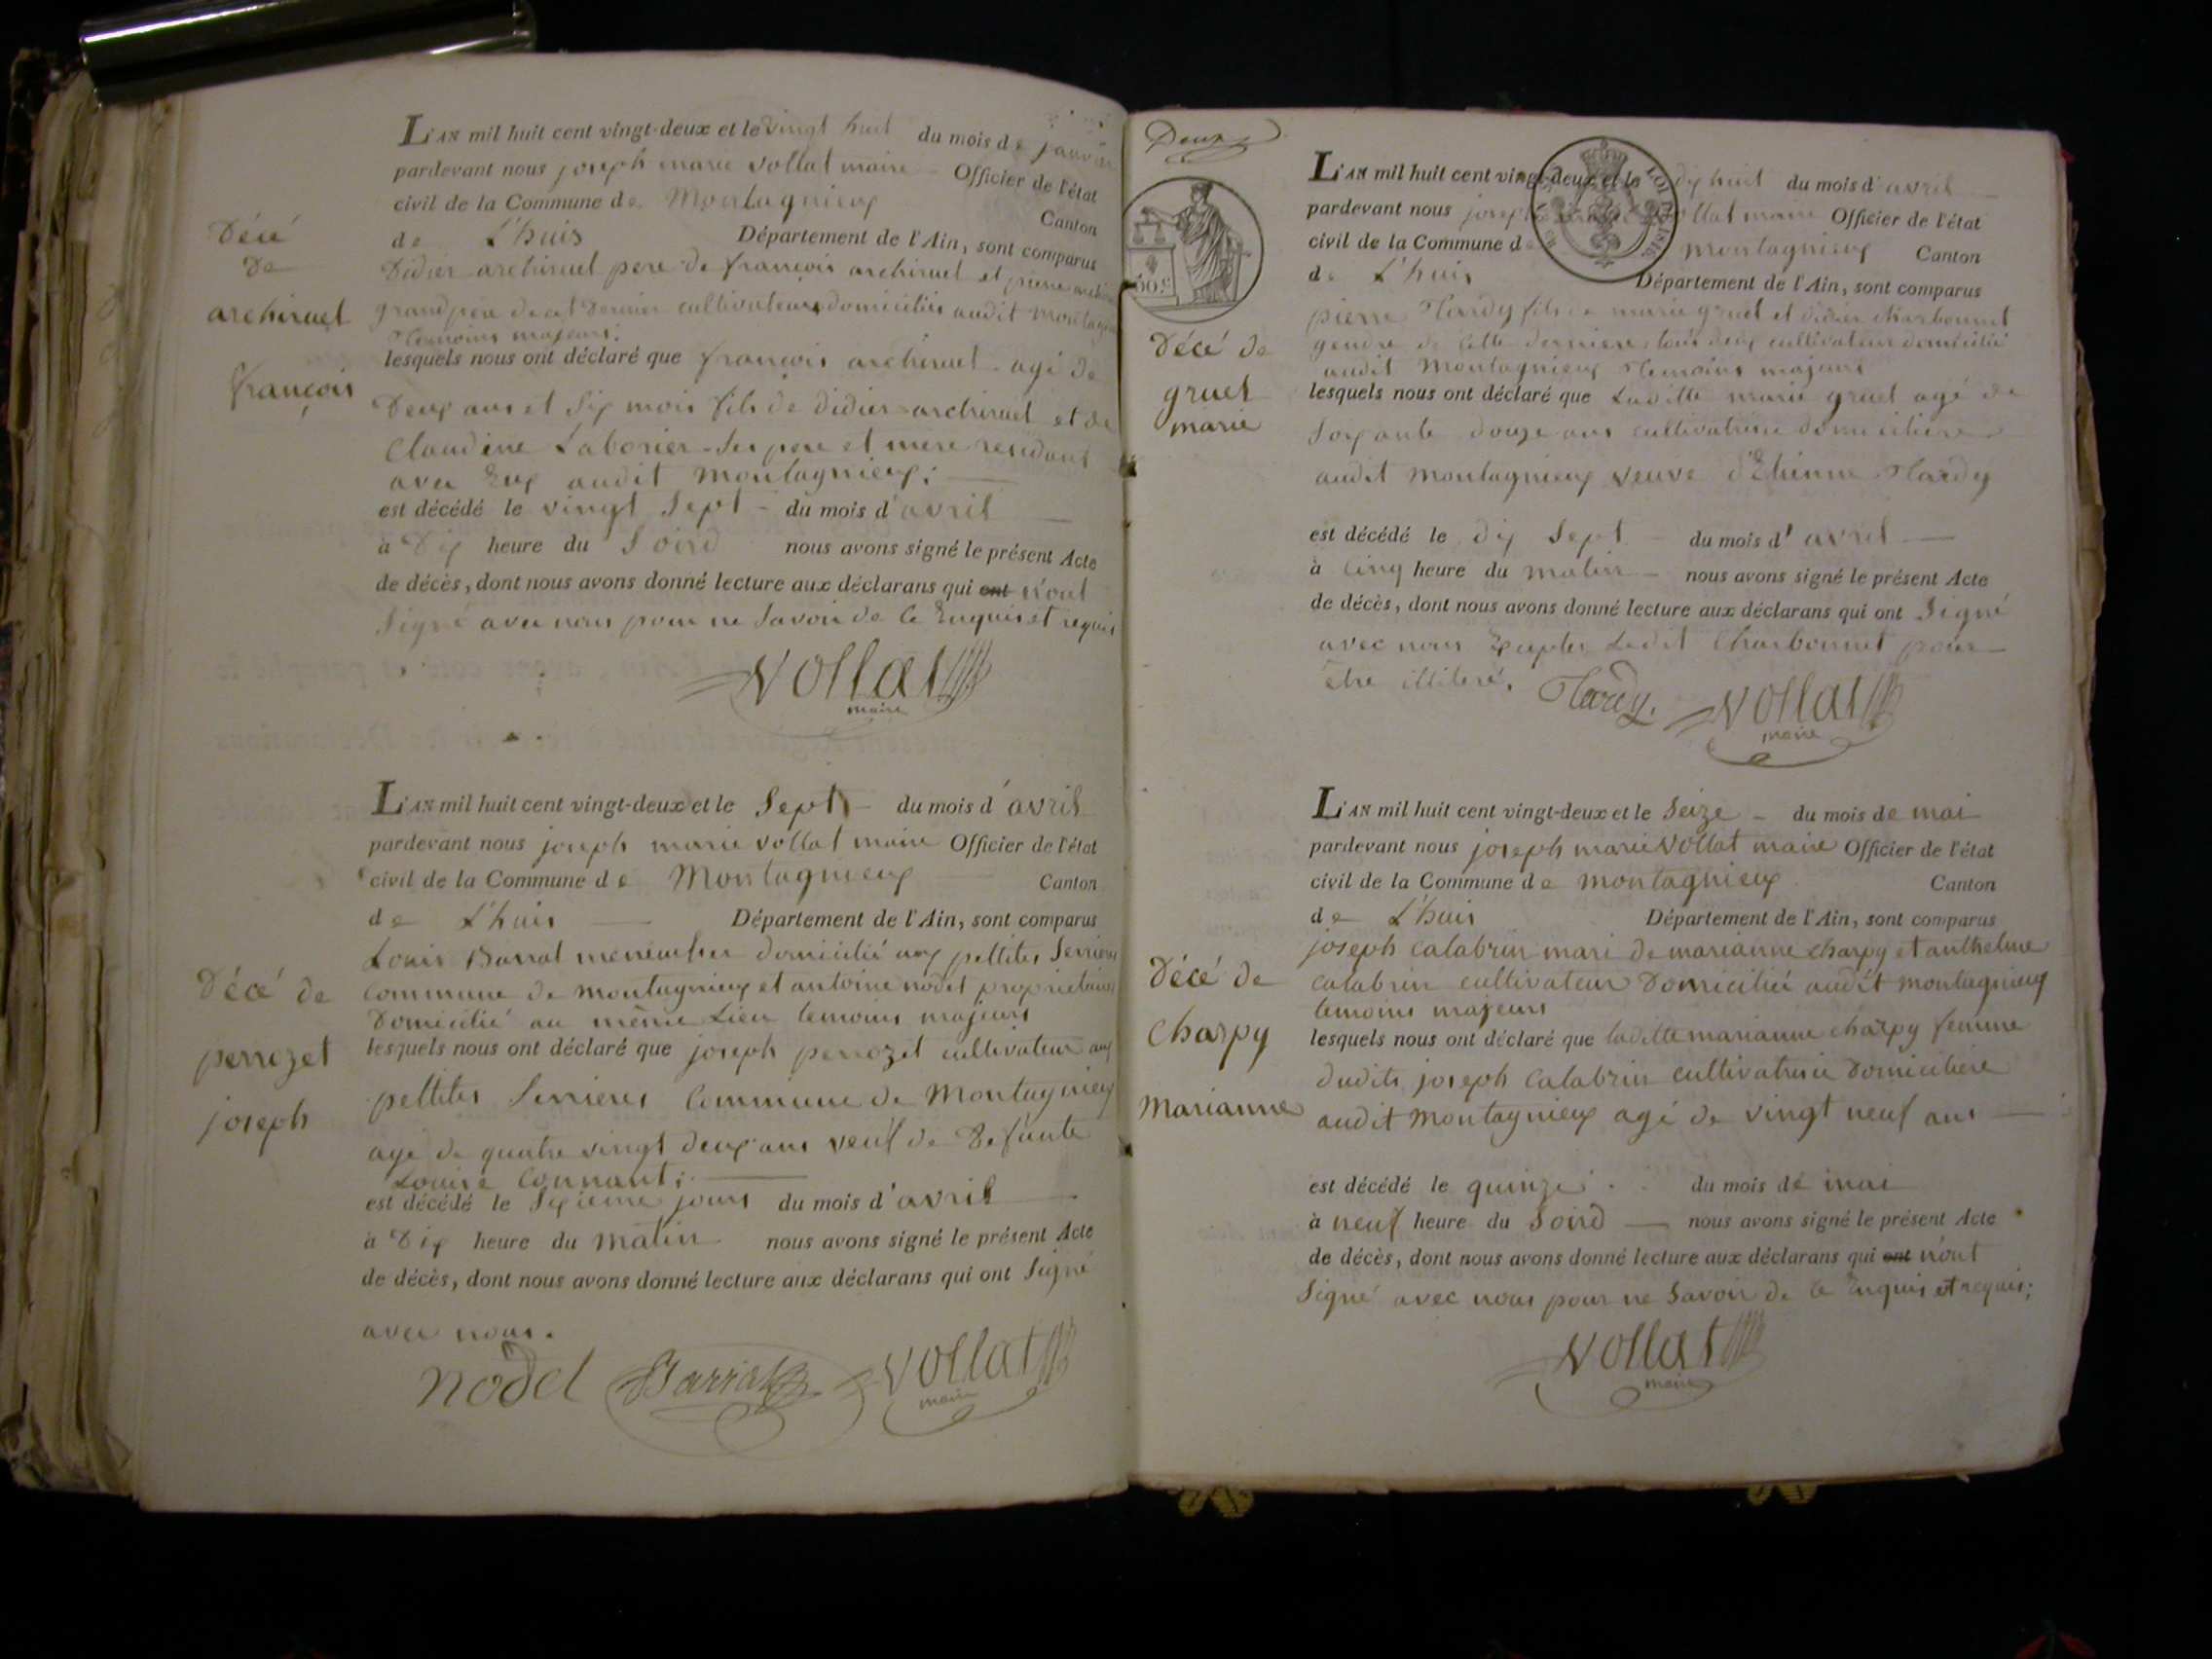 L'AN mil huit cent vingt-deux et le vingt huit du mois de janvier
pardevant nous joseph marie vollat maire Officier de l'état
civil de la Commune de Montagnieux Canton
de L'huis Département de l'Ain, sont comparus
didier archiruel pere de françois archiruel et pierre
grand pere de cet dernier cultivateurs domiciliés audit montagnieux
temoins majeurs;
lesquels nous ont déclaré que françois archiruel agé de
deux ans et six mois fils de didier archiruel et de
Claudine Laborier ses pere et mere residant
avec eux audit montagnieux;
est décédé le vingt sept du mois d'avril
à dix heure du soird nous avons signé le présent Acte
de décès, dont nous avons donné lecture aux déclarans qui ont n'ont
signé avec nous pour ne savoir de ce enquis et requis
vollat
maire
décé
de
archiruel
françois
L'AN mil huit cent vingt-deux et le sept du mois d'avril
pardevant nous joseph marie vollat maire Officier de l'état
civil de la Commune de Montagnieux Canton
de L'huis Département de l'Ain, sont comparus
Louis Barrat domicilié aux pettites Serrieres
commune de montagnieux et antoine nodet proprietaires
domicilié au même Lieu temoins majeurs
lesquels nous ont déclaré que joseph perrozet cultivateur aux
pettites Serrieres Commune de Montagnieux
agé de quatre vingt deux ans veuf de defunte
Louise Connant;
est décédé le sixieme jours du mois d'avril
à dix heure du matin nous avons signé le présent Acte
de décès, dont nous avons donné lecture aux déclarans qui ont signé
avec nous.
nodet Barrat vollat
maire
décé de
perrozet
joseph
Deux
LOI DE 1816
50 C
L'AN mil huit cent vingt-deux et le dix huit du mois d'avril
pardevant nous joseph marie vollat maire Officier de l'état
civil de la Commune de montagnieux Canton
de L'huis Département de l'Ain, sont comparus
pierre Hardy fils de marie gruet et didier charbonnet
gendre de cette derniere tous deux cultivateur domicilié
audit Montagnieux temoins majeurs
lesquels nous ont déclaré que Laditte marie gruet agé de
soixante douze ans cultivatrice domiciliere
audit montagnieux veuve d'Etienne Hardy
est décédé le dix sept du mois d'avril
à cinq heure du matin nous avons signé le présent Acte
de décès, dont nous avons donné lecture aux déclarans qui ont signé
avec nous excepter Ledit Charbonnet pour
etre illiteré.
Hardy. vollat
maire
décé de
gruet
marie
L'AN mil huit cent vingt-deux et le seize du mois de mai
pardevant nous joseph marie vollat maire Officier de l'état
civil de la Commune de montagnieux Canton
de L'huis Département de l'Ain, sont comparus
joseph calabrin mari de marianne charpy et anthelme
calabrin cultivateur domicilié audit montagnieux
temoins majeurs
lesquels nous ont déclaré que laditte marianne charpy femme
dudits joseph calabrin cultivatrice domiciliere
audit montagnieux agé de vingt neuf ans
est décédé le quinze du mois de mai
à neuf heure du soird nous avons signé le présent Acte
de décès, dont nous avons donné lecture aux déclarans qui ont n'ont
signé avec nous pour ne savoir de ce enquis et requis;
vollat
maire
décé de
Charpy
Marianne